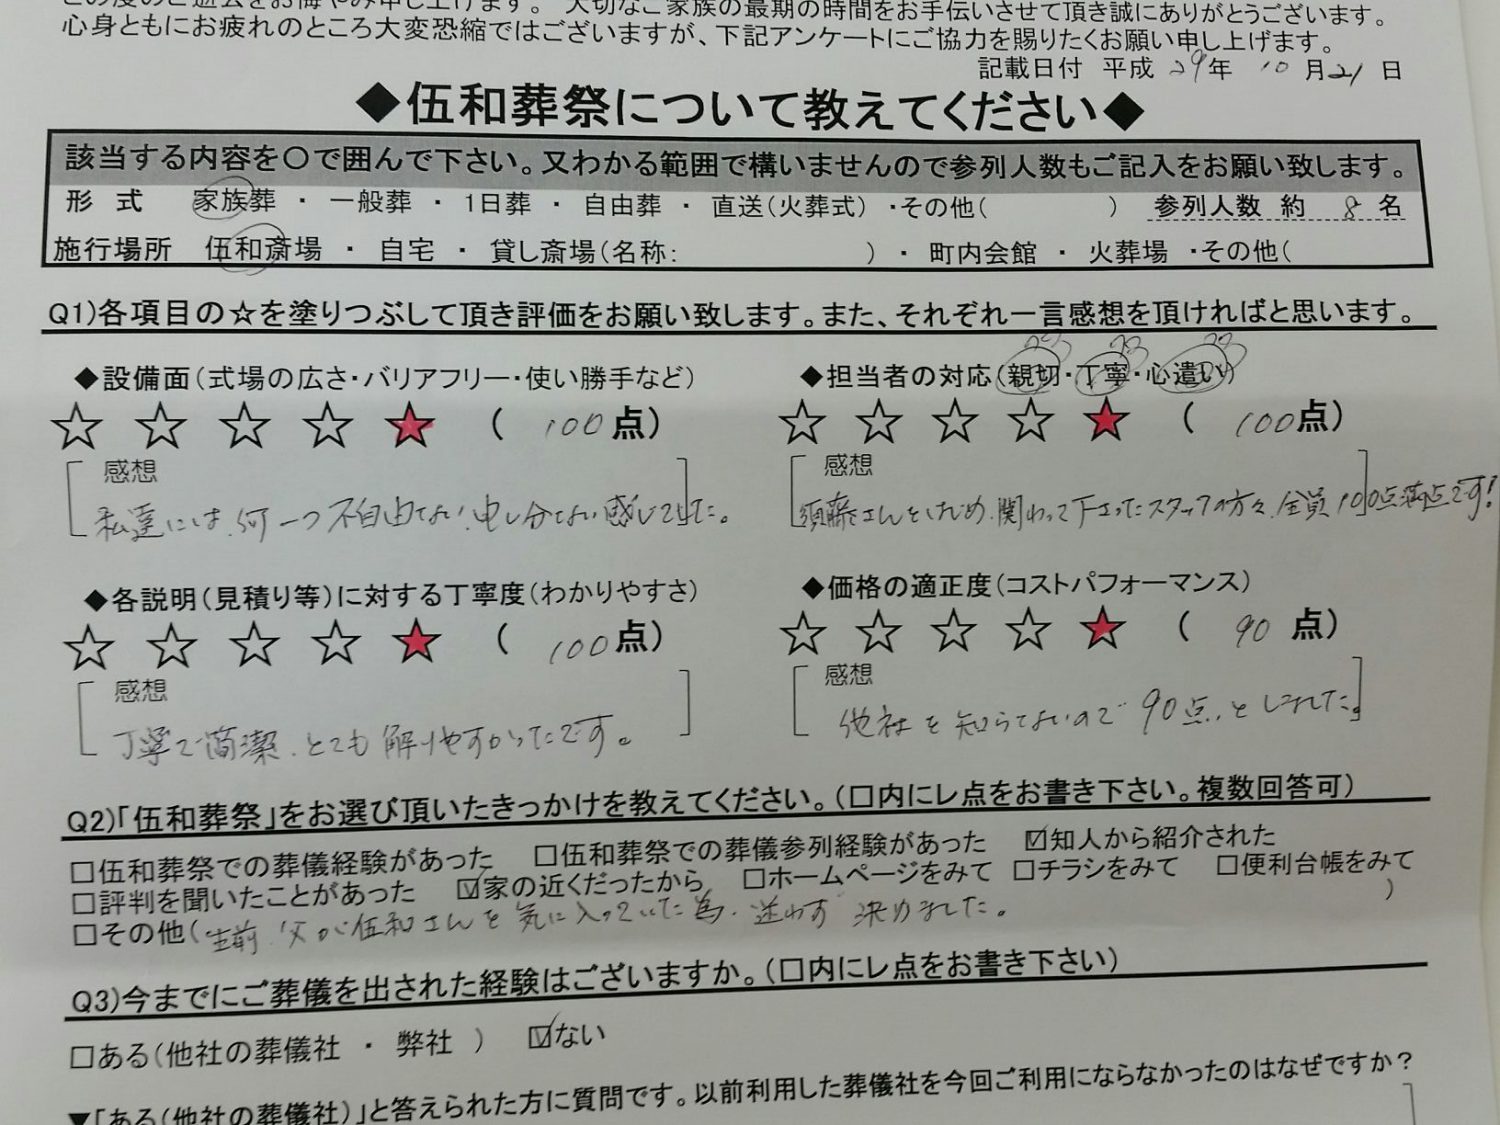 この度のご逝去をお悔やみ申し上げます。 大切なご家族の最期の時間をお手伝いさせて頂き誠にありがとうございます。
心身ともにお疲れのところ大変恐縮ではございますが、下記アンケートにご協力を賜りたくお願い申し上げます。
記載日付 平成 29年 10 月 21 日
◆伍和葬祭について教えてください◆
該当する内容を〇で囲んで下さい。又わかる範囲で構いませんので参列人数もご記入をお願い致します。
形 式 家族葬 ・ 一般葬 ・ 1日葬 ・ 自由葬 ・ 直送(火葬式) ・その他( ) 参列人数 約 8 名
施行場所 伍和斎場 ・ 自宅 ・ 貸し斎場(名称: ) ・ 町内会館 ・ 火葬場 ・その他(
Q1)各項目の☆を塗りつぶして頂き評価をお願い致します。また、それぞれ一言感想を頂ければと思います。
◆設備面(式場の広さ・バリアフリー・使い勝手など)
☆ ☆ ☆ ☆ ★ ( 100 点)
感想
私達には、何一つ不自由なく、申し分ない感じでした。
◆担当者の対応(親切・丁寧・心遣い)
☆ ☆ ☆ ☆ ★ ( 100 点)
感想
須藤さんをはじめ、関わって下さったスタッフの方々、全員100点満点です!
◆各説明(見積り等)に対する丁寧度(わかりやすさ)
☆ ☆ ☆ ☆ ★ ( 100 点)
感想
丁寧で簡潔、とても解りやすかったです。
◆価格の適正度(コストパフォーマンス)
☆ ☆ ☆ ☆ ★ ( 90 点)
感想
他社を知らないので90点、としました。
Q2)「伍和葬祭」をお選び頂いたきっかけを教えてください。(□内にレ点をお書き下さい。複数回答可)
□伍和葬祭での葬儀経験があった □伍和葬祭での葬儀参列経験があった ☑知人から紹介された
□評判を聞いたことがあった ☑家の近くだったから □ホームページをみて □チラシをみて □便利台帳をみて
□その他(生前、父が伍和さんを気に入っていた為、迷わず決めました。 )
Q3)今までにご葬儀を出された経験はございますか。(□内にレ点をお書き下さい)
□ある(他社の葬儀社 ・ 弊社 ) ☑ない
▼「ある(他社の葬儀社)」と答えられた方に質問です。以前利用した葬儀社を今回ご利用にならなかったのはなぜですか?